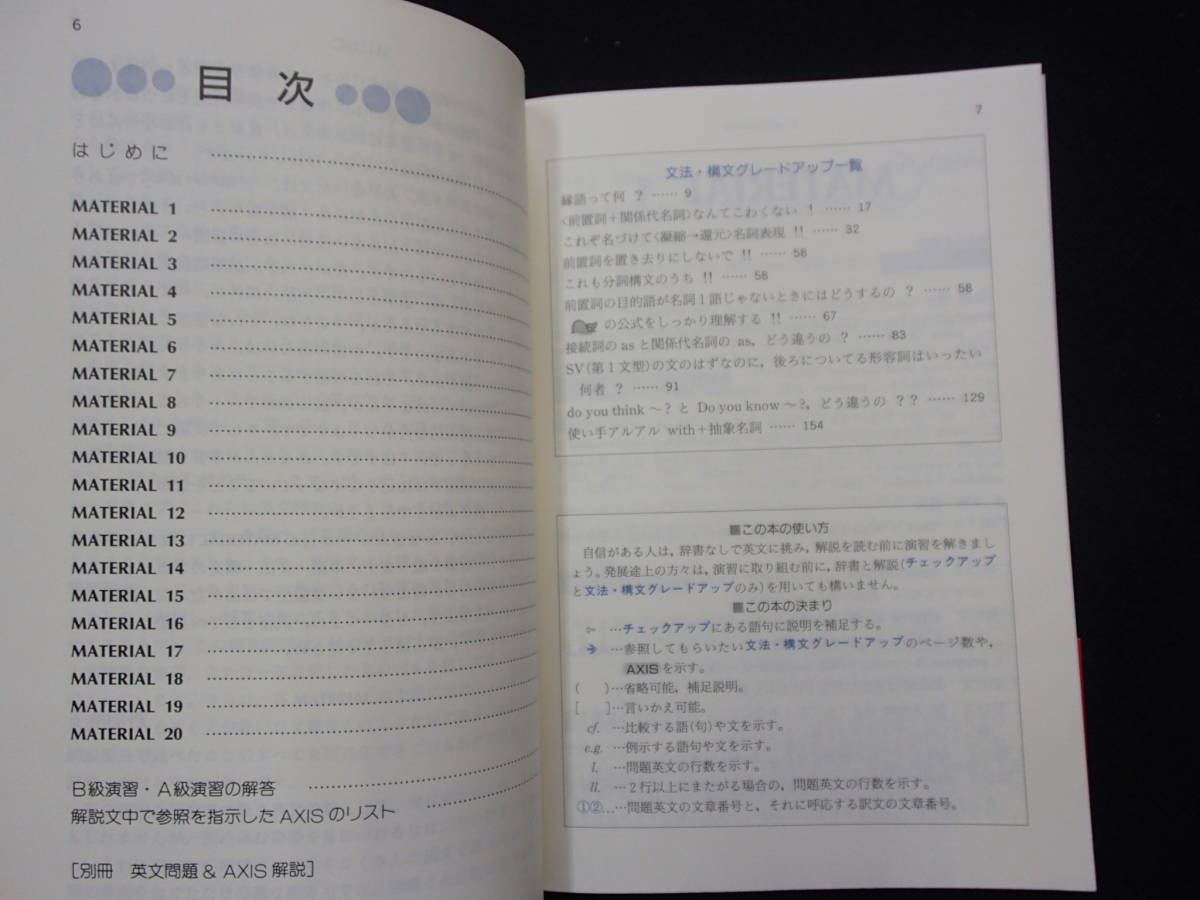 6
目次
はじめに
MATERIAL 1
MATERIAL 2
MATERIAL 3
MATERIAL 4
MATERIAL 5
MATERIAL 6
MATERIAL 7
MATERIAL 8
MATERIAL 9
MATERIAL 10
MATERIAL 11
MATERIAL 12
MATERIAL 13
MATERIAL 14
MATERIAL 15
MATERIAL 16
MATERIAL 17
MATERIAL 18
MATERIAL 19
MATERIAL 20
B級演習・A級演習の解答
解説文中で参照を指示したAXISのリスト
[別冊 英文問題 & AXIS 解説]
7
文法・構文グレードアップ一覧
縁語って何 ? …… 9
〈前置詞+関係代名詞〉なんてこわくない ! …… 17
これぞ名づけて〈凝縮→還元〉名詞表現 !! …… 32
前置詞を置き去りにしないで !! …… 58
これも分詞構文のうち !! …… 58
前置詞の目的語が名詞1語じゃないときにはどうするの ? …… 58
の公式をしっかり理解する !! …… 67
接続詞の as と関係代名詞の as, どう違うの ? …… 83
SV(第1文型)の文のはずなのに, 後ろについてる形容詞はいったい
何者 ? …… 91
do you think ~? と Do you know ~?, どう違うの ?? …… 129
使い手アルアル with+抽象名詞 …… 154
■この本の使い方
自信がある人は, 辞書なしで英文に挑み, 解説を読む前に演習を解きまし
ょう。発展途上の方々は, 演習に取り組む前に, 辞書と解説(チェックアップ
と文法・構文グレードアップのみ)を用いても構いません。
■この本の決まり
⇦ …チェックアップにある語句に説明を補足する。
➔ …参照してもらいたい文法・構文グレードアップのページ数や,
AXISを示す。
( )…省略可能, 補足説明。
[ ]…言いかえ可能。
cf. …比較する語(句)や文を示す。
e.g. …例示する語句や文を示す。
l. …問題英文の行数を示す。
ll. …2行以上にまたがる場合の, 問題英文の行数を示す。
①②…問題英文の文章番号と, それに呼応する訳文の文章番号。